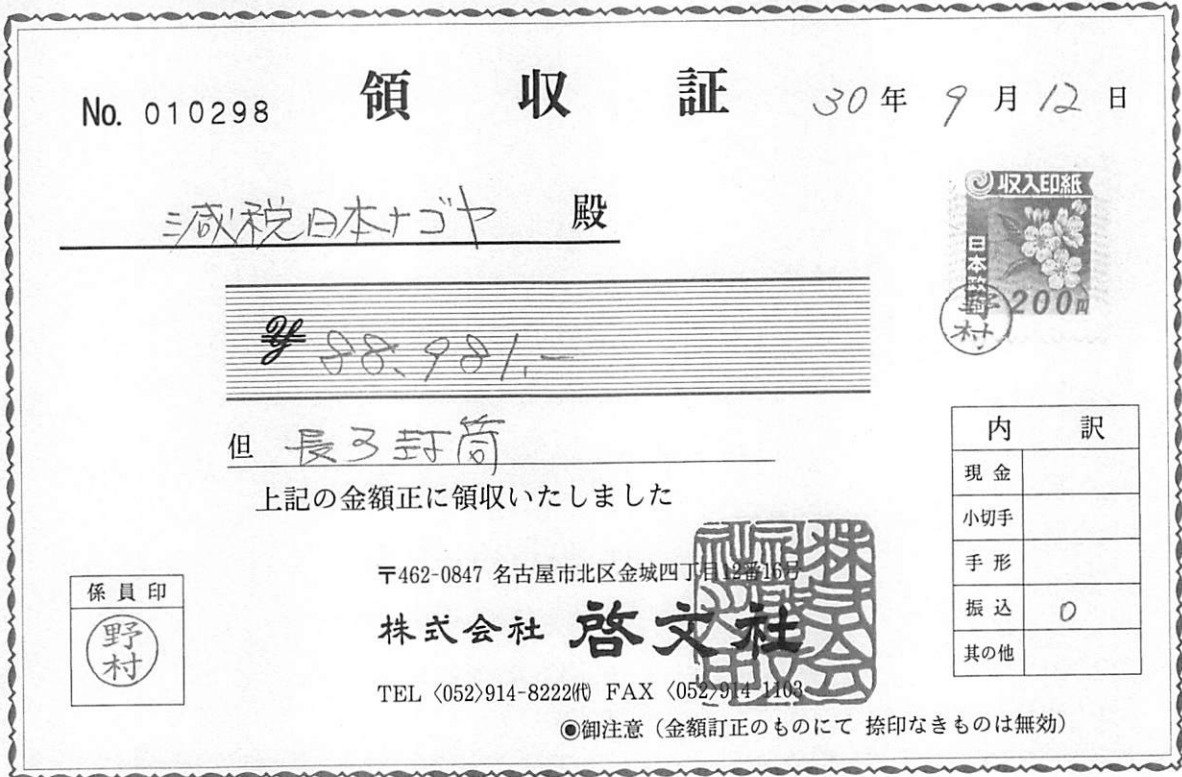 No. 010298 領収証 30年 9月12日
減税日本ナゴヤ 殿
収入印紙
日本政府
200円
野村
¥ 88,981.-
但 長3封筒
上記の金額正に領収いたしました
内訳
現金
小切手
手形
振込 0
其の他
係員印
野村
〒462-0847 名古屋市北区金城四丁目12番16号
株式会社 啓文社
TEL〈052〉914-8222㈹ FAX〈052〉914-1103
◉御注意(金額訂正のものにて 捺印なきものは無効)